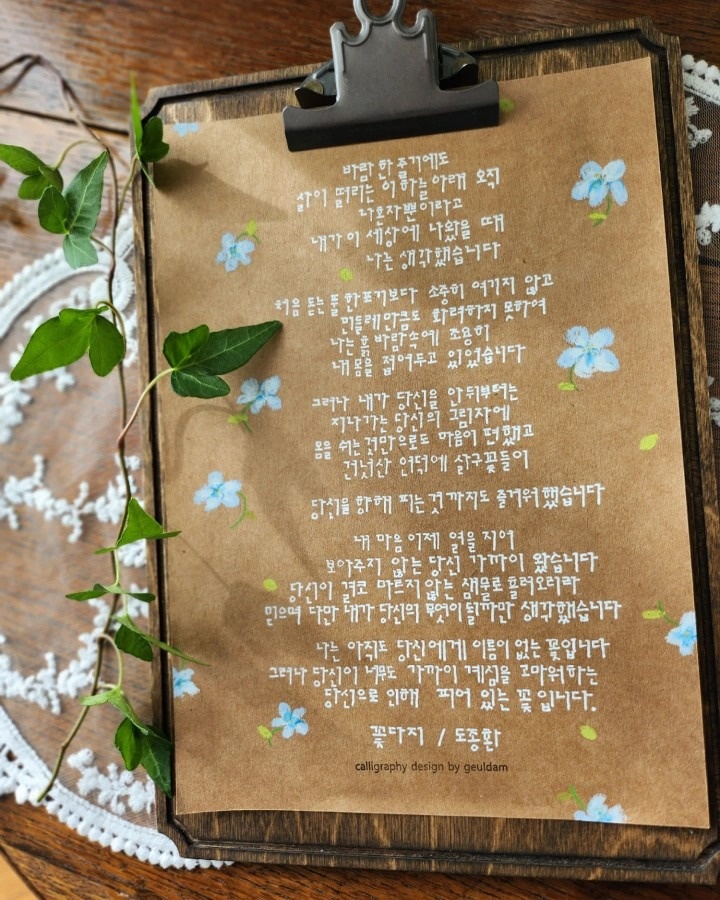 바람 한 줄기에도
살이 떨리는 이 하늘 아래 오직
나 혼자뿐이라고
내가 이 세상에 나왔을 때
나는 생각했습니다
처음 돋는 풀 한포기보다 소중히 여기지 않고
민들레만큼도 화려하지 못하여
나는 흙바람속에 조용히
내 몸을 접어두고 있었습니다
그러나 내가 당신을 안 뒤부터는
지나가는 당신의 그림자에
몸을 쉬는것만으로도 마음이 편했고
건넛산 언덕에 살구꽃들이
당신을 향해 피는것까지도 즐거워했습니다
내 마음 이제 열을 지어
보아주지 않는 당신 가까이 왔습니다
당신이 결코 마르지 않는 샘물로 흘러오리라
믿으며 다만 내가 당신의 무엇이 될까만 생각했습니다
나는 아직도 당신에게 이름이 없는 꽃입니다
그러나 당신이 너무도 가까이 계심을 고마워하는
당신으로 인해 피어 있는 꽃입니다.
꽃다지 / 도종환
calligraphy design by geuldam